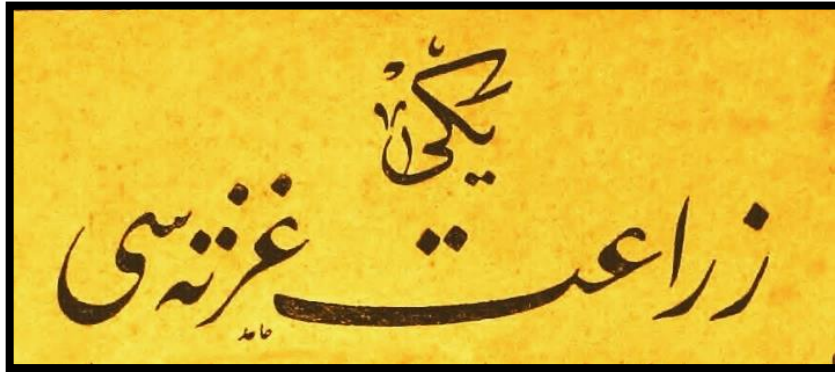 یكی
زراعت غزته سی
حامد